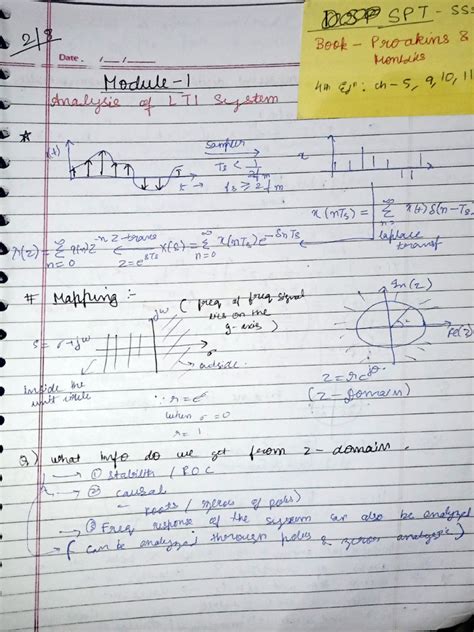 2/8
DSP SPT - SS
Book - Proakins &
Monlakis
4th Edn : ch - 5, 9, 10, 11
Date. __/__/__
Module - 1
Analysis of LTI System
x(t)
Sampler
Ts < 1/2fm
t →
fs ≥ 2fm
x
x(nTs) = ∞ Σ n=0 x(t) δ(n-Ts
Laplace
transf
X(z) = ∞ Σ n=0 x(n) z^-n
z-trans
z = e^sTs
X(s) = ∞ Σ n=0 x(nTs) e^-snTs
# Mapping :-
( freq of freq signal
lies on the
axis )
jω
Im(z)
Re(z)
s = σ + jω
σ
outside
inside the
unit circle
∴ r = e^σ
when σ = 0
r = 1
z = re^jω
( Z - Domain )
Q) What info do we get from z - domain.
① Stability / ROC
② Causal
roots / zeros of poles)
③ Freq response of the system can also be analyzed
( can be analyzed through poles & zeros analysis )